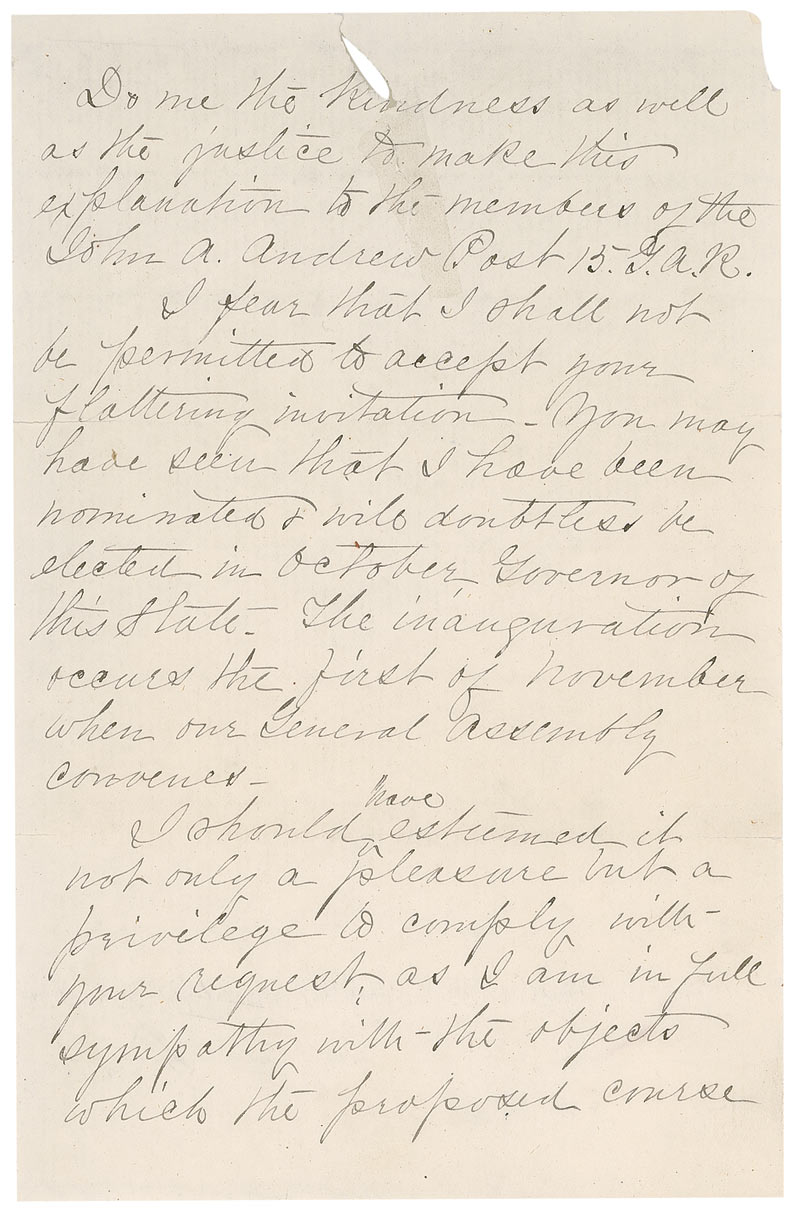 Do me the kindness as well
as the justice to make this
explanation to the members of the
John A. Andrew Post 15. G.A.R.
I fear that I shall not
be permitted to accept your
flattering invitation - You may
have seen that I have been
nominated & will doubtless be
elected in October, Governor of
this State - The inauguration
occurs the first of November
when our General Assembly
convenes -
have
I should ^ esteemed it
not only a pleasure but a
privilege to comply with
your request; as I am in full
sympathy with - the objects
which the proposed course